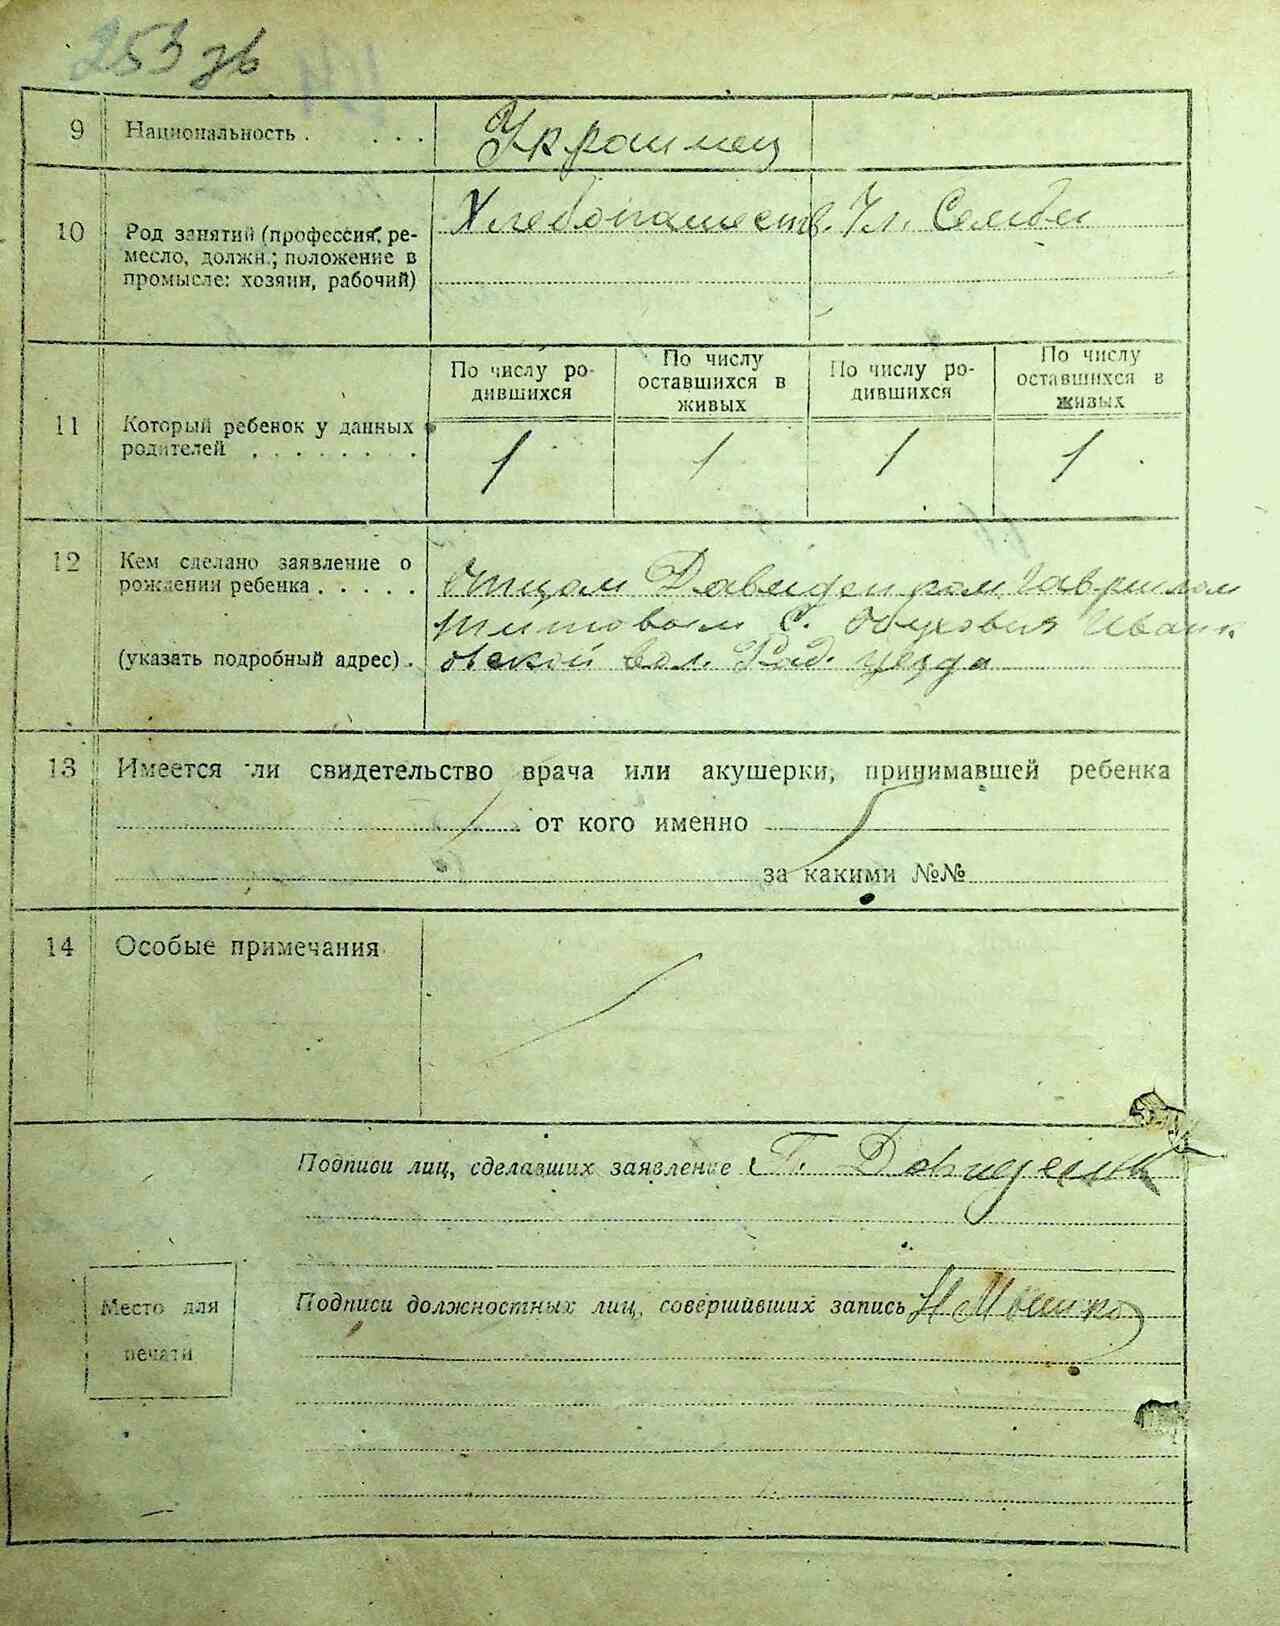 253 зв
9 Национальность . . . . Украинец
10 Род занятий (профессия, ре-
месло, должн.; положение в
промысле: хозяин, рабочий)
Хлебопашеств. Чл. Семьи
11 Который ребенок у данных
родителей . . . . . . . .
По числу ро-
дившихся
По числу
оставшихся в
живых
По числу ро-
дившихся
По числу
оставшихся в
живых
1 1 1 1
12 Кем сделано заявление о
рождении ребенка . . . . .
(указать подробный адрес) .
Отцом Гаврилом
Титовым С. Обуховия Иванк
овской вол. Рад. уезда
13 Имеется ли свидетельство врача или акушерки, принимавшей ребенка
от кого именно
за какими №№
14 Особые примечания
Подписи лиц, сделавших заявление Г.
Место для
печати
Подписи должностных лиц, совершивших запись